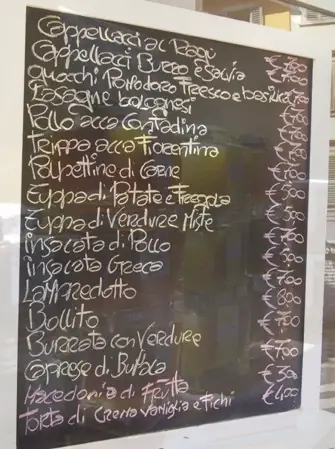 Cappellacci al Ragù
Cappellacci Burro e Salvia €7,00
Gnocchi Pomodoro Fresco e basilico €7,00
Lasagne bolognesi
Pollo alla Contadina €7,00
Trippa alla Fiorentina €7,00
Polpettine di Carne €7,00
Zuppa di Patate e Fregola €5,00
Zuppa di Verdure Miste €5,00
insalata di Pollo
insalata Greca
Lampredotto
Bollito €7,00
Burrata con Verdure €7,00
Caprese di Bufala
Macedonia di Frutta €3,00
Torta di Crema vaniglia e Fichi €4,00